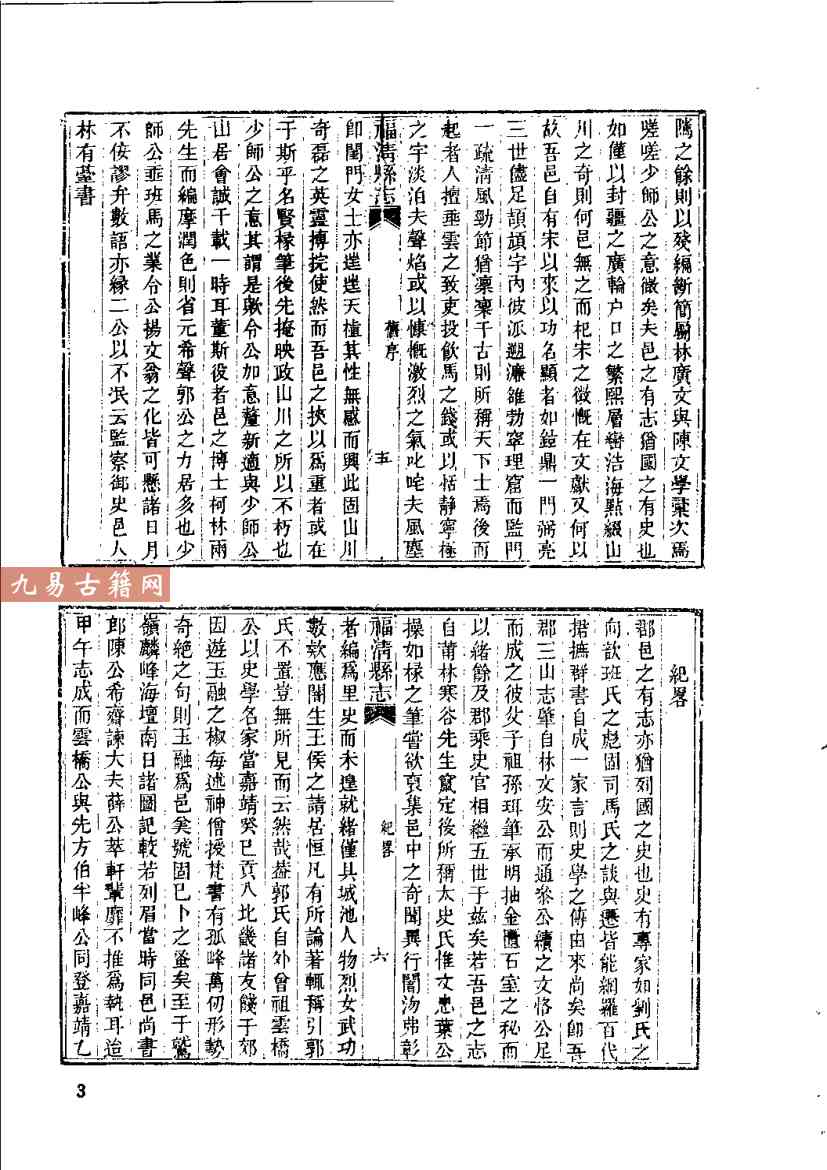 隲之餘則以殘編斷簡屬林廣文與陳文學彙次焉
嗟嗟少師公之意微矣夫邑之有志猶國之有史也
如僅以封疆之廣輪户口之繁熙層巒浩海點綴山
川之奇則何邑無之而杞宋之徵慨在文獻又何以
故吾邑自有宋以來以功名顯者如鎧鼎一門弼亮
三世儘足頡頏宇内彼派遡濂雒勃窣理窟而監門
一疏清風勁節猶稟稟千古則所稱天下士焉後而
起者人擅垂雲之致吏投飲馬之錢或以恬静寧極
之宇淡泊夫聲焰或以慷慨激烈之氣叱咤夫風塵
福清縣志 舊序 五
卽閨門女士亦𨔛𨔛天植其性無感而興此固山川
奇磊之英靈摶捖使然而吾邑之挾以爲重者或在
于斯乎名賢椽筆後先掩映政山川之所以不朽也
少師公之意其謂是歟令公加意釐新適與少師公
山居會誠千載一時耳董斯役者邑之博士柯林兩
先生而編摩潤色則省元希聲郭公之力居多也少
師公埀班馬之業令公揚文翁之化皆可懸諸日月
不佞謬弁數語亦緣二公以不泯云監察御史邑人
林有薹書
紀畧
郡邑之有志亦猶列國之史也史有專家如劉氏之
向歆班氏之彪固司馬氏之談與遷皆能網羅百代
捃摭群書自成一家言則史學之傳由來尚矣卽吾
郡三山志肇自林文安公而通叅公續之文恪公足
而成之彼父子祖孫珥筆承明抽金匱石室之秘而
以緒餘及郡乘史官相繼五世于兹矣若吾邑之志
自莆林寒谷先生竄定後所稱太史氏惟文忠葉公
操如椽之筆嘗欲裒集邑中之奇聞異行闇汹弗彰
福清縣志 紀畧 六
者編爲里史而未遑就緒僅具城池人物烈女武功
數欸應闇生王侯之請居恒凡有所論著輒稱引郭
氏不置豈無所見而云然哉葢郭氏自外曾祖雲橋
公以史學名家當嘉靖癸巳貢入北畿諸友餞于郊
因遊玉融之椒每述神僧授梵書有孤峰萬仞形勢
奇絶之句則玉融爲邑矣號固已卜之蚤矣至于鷲
嶺麟峰海壇南日諸圖記較若列眉當時同邑尚書
郎陳公希齋諫大夫薛公萃軒輩靡不推爲執耳迨
甲午志成而雲橋公與先方伯半峰公同登嘉靖乙
九易古籍网
3